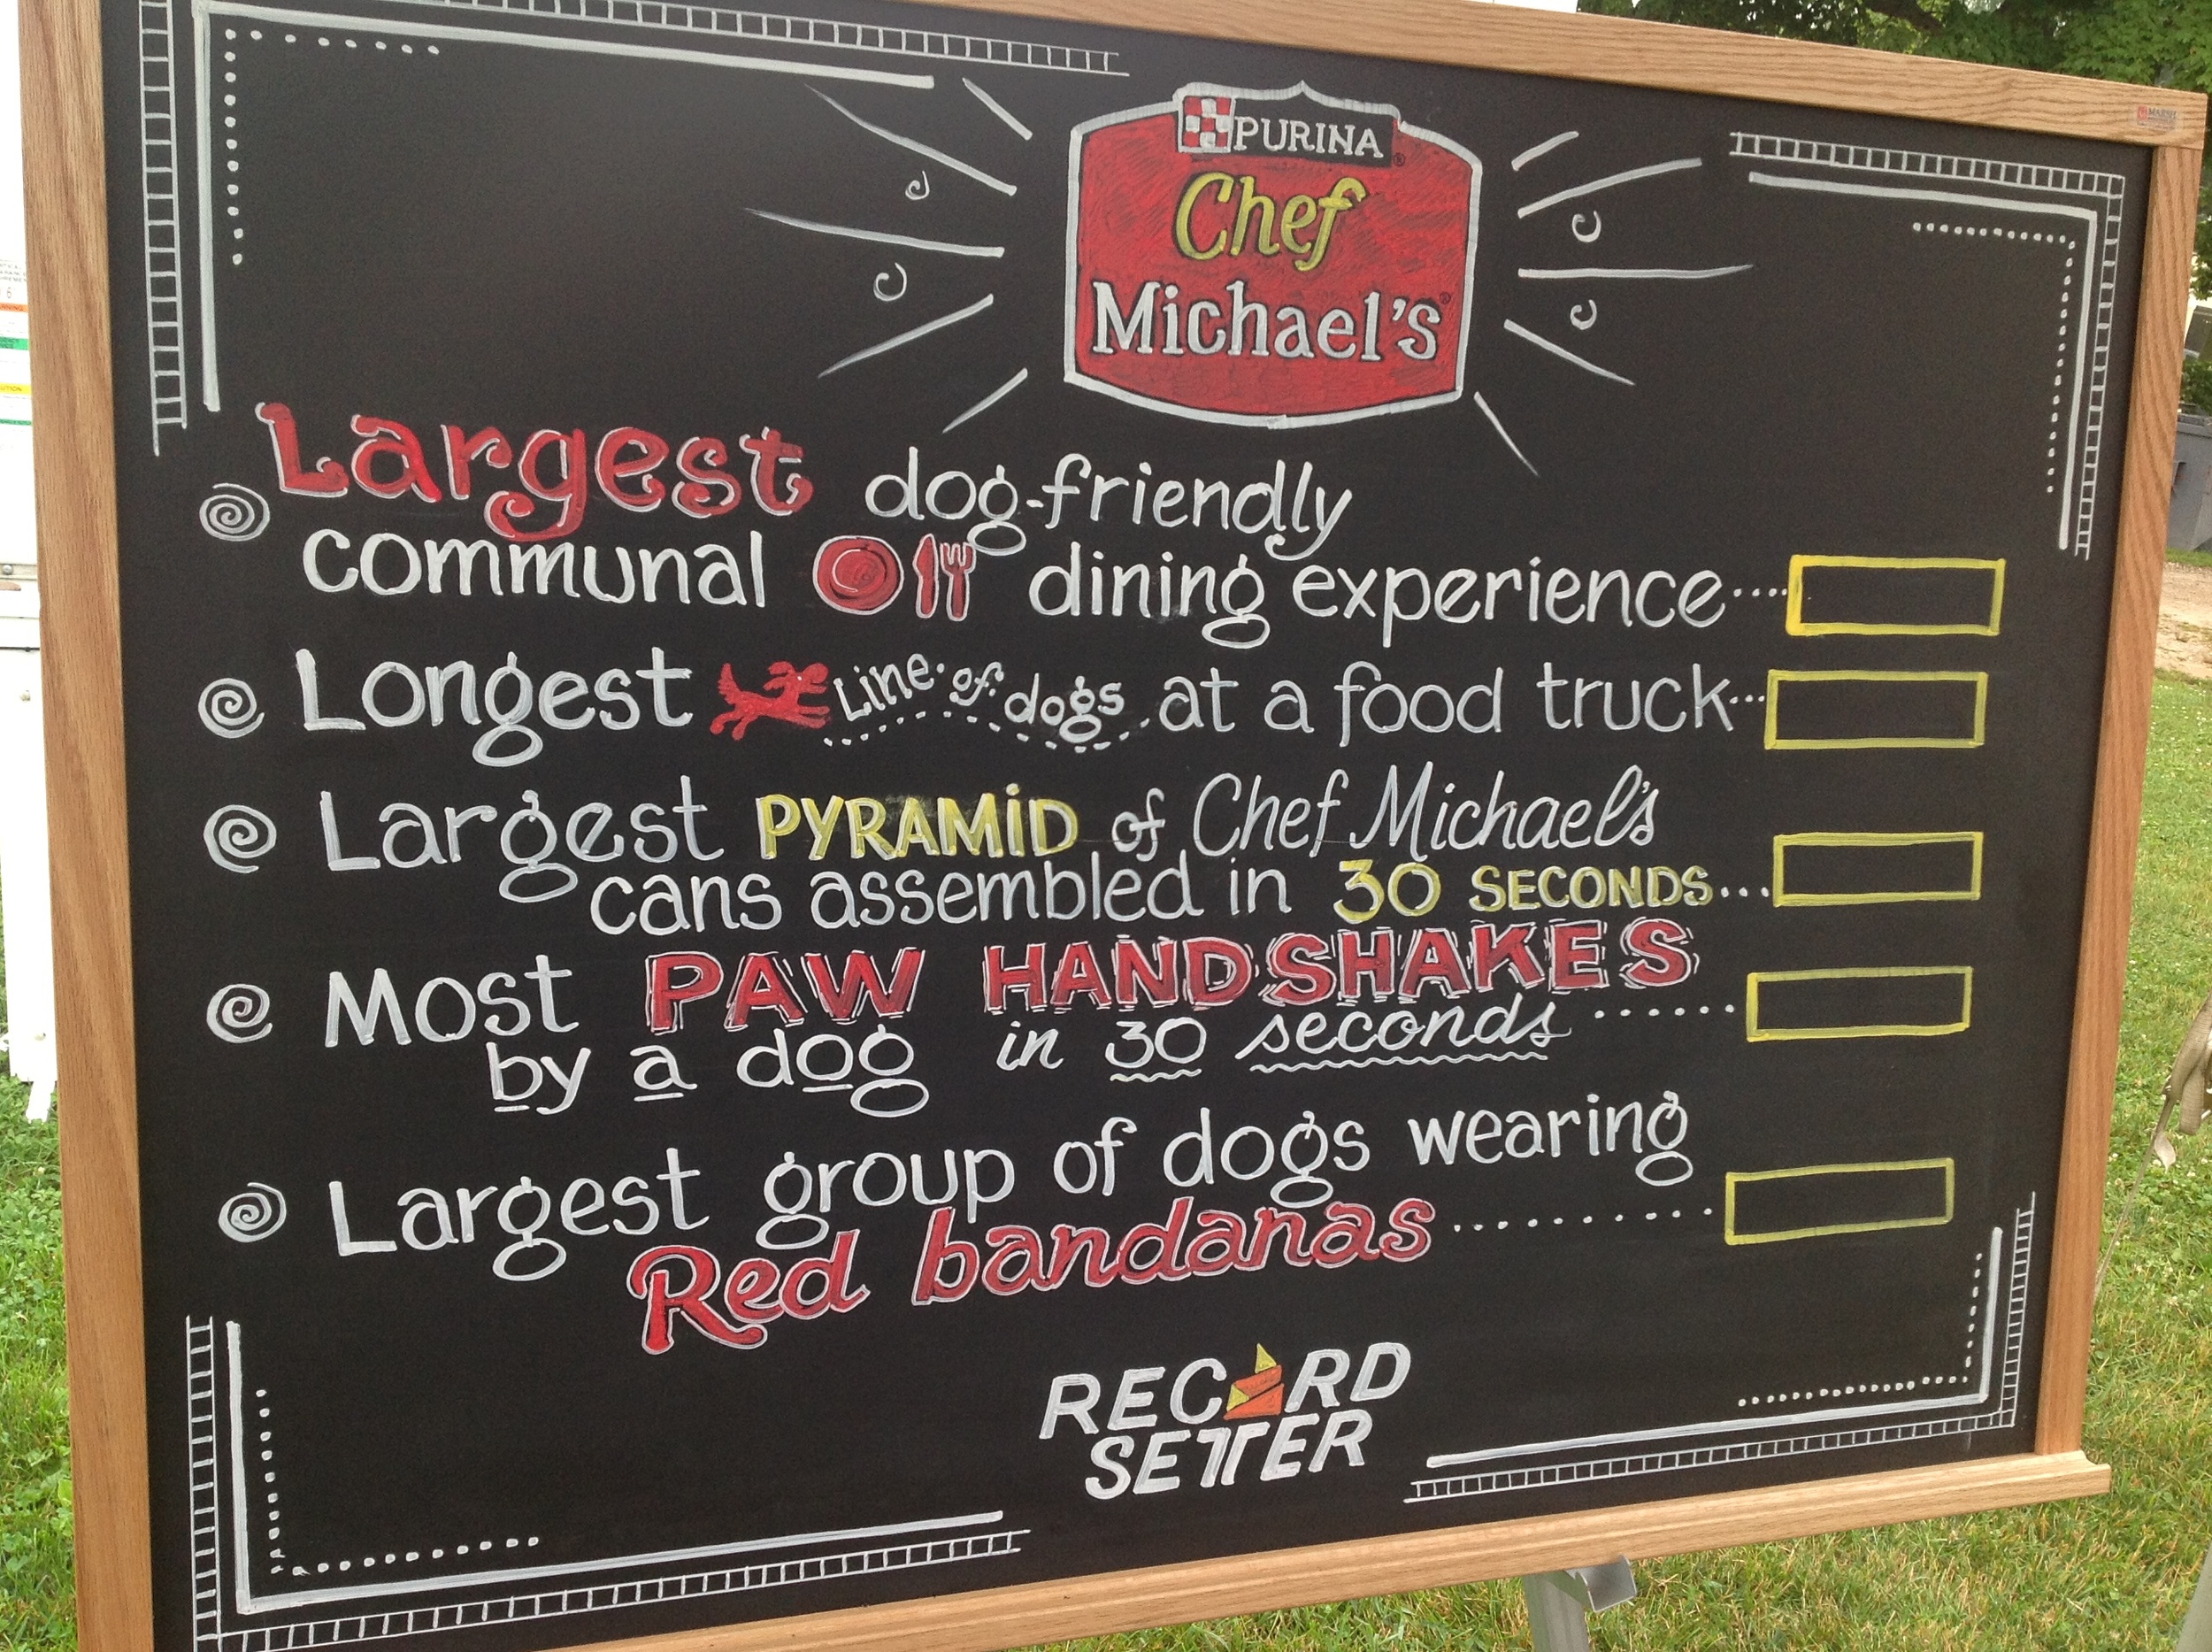 PURINA
Chef
Michael's
Largest dog-friendly
communal dining experience....
Longest Line of dogs at a food truck...
Largest PYRAMiD of Chef Michael's
cans assembled in 30 SECONDS...
Most PAW HANDSHAKES
by a dog in 30 seconds......
Largest group of dogs wearing
Red bandanas..........
RECORD
SETTER
MARSH